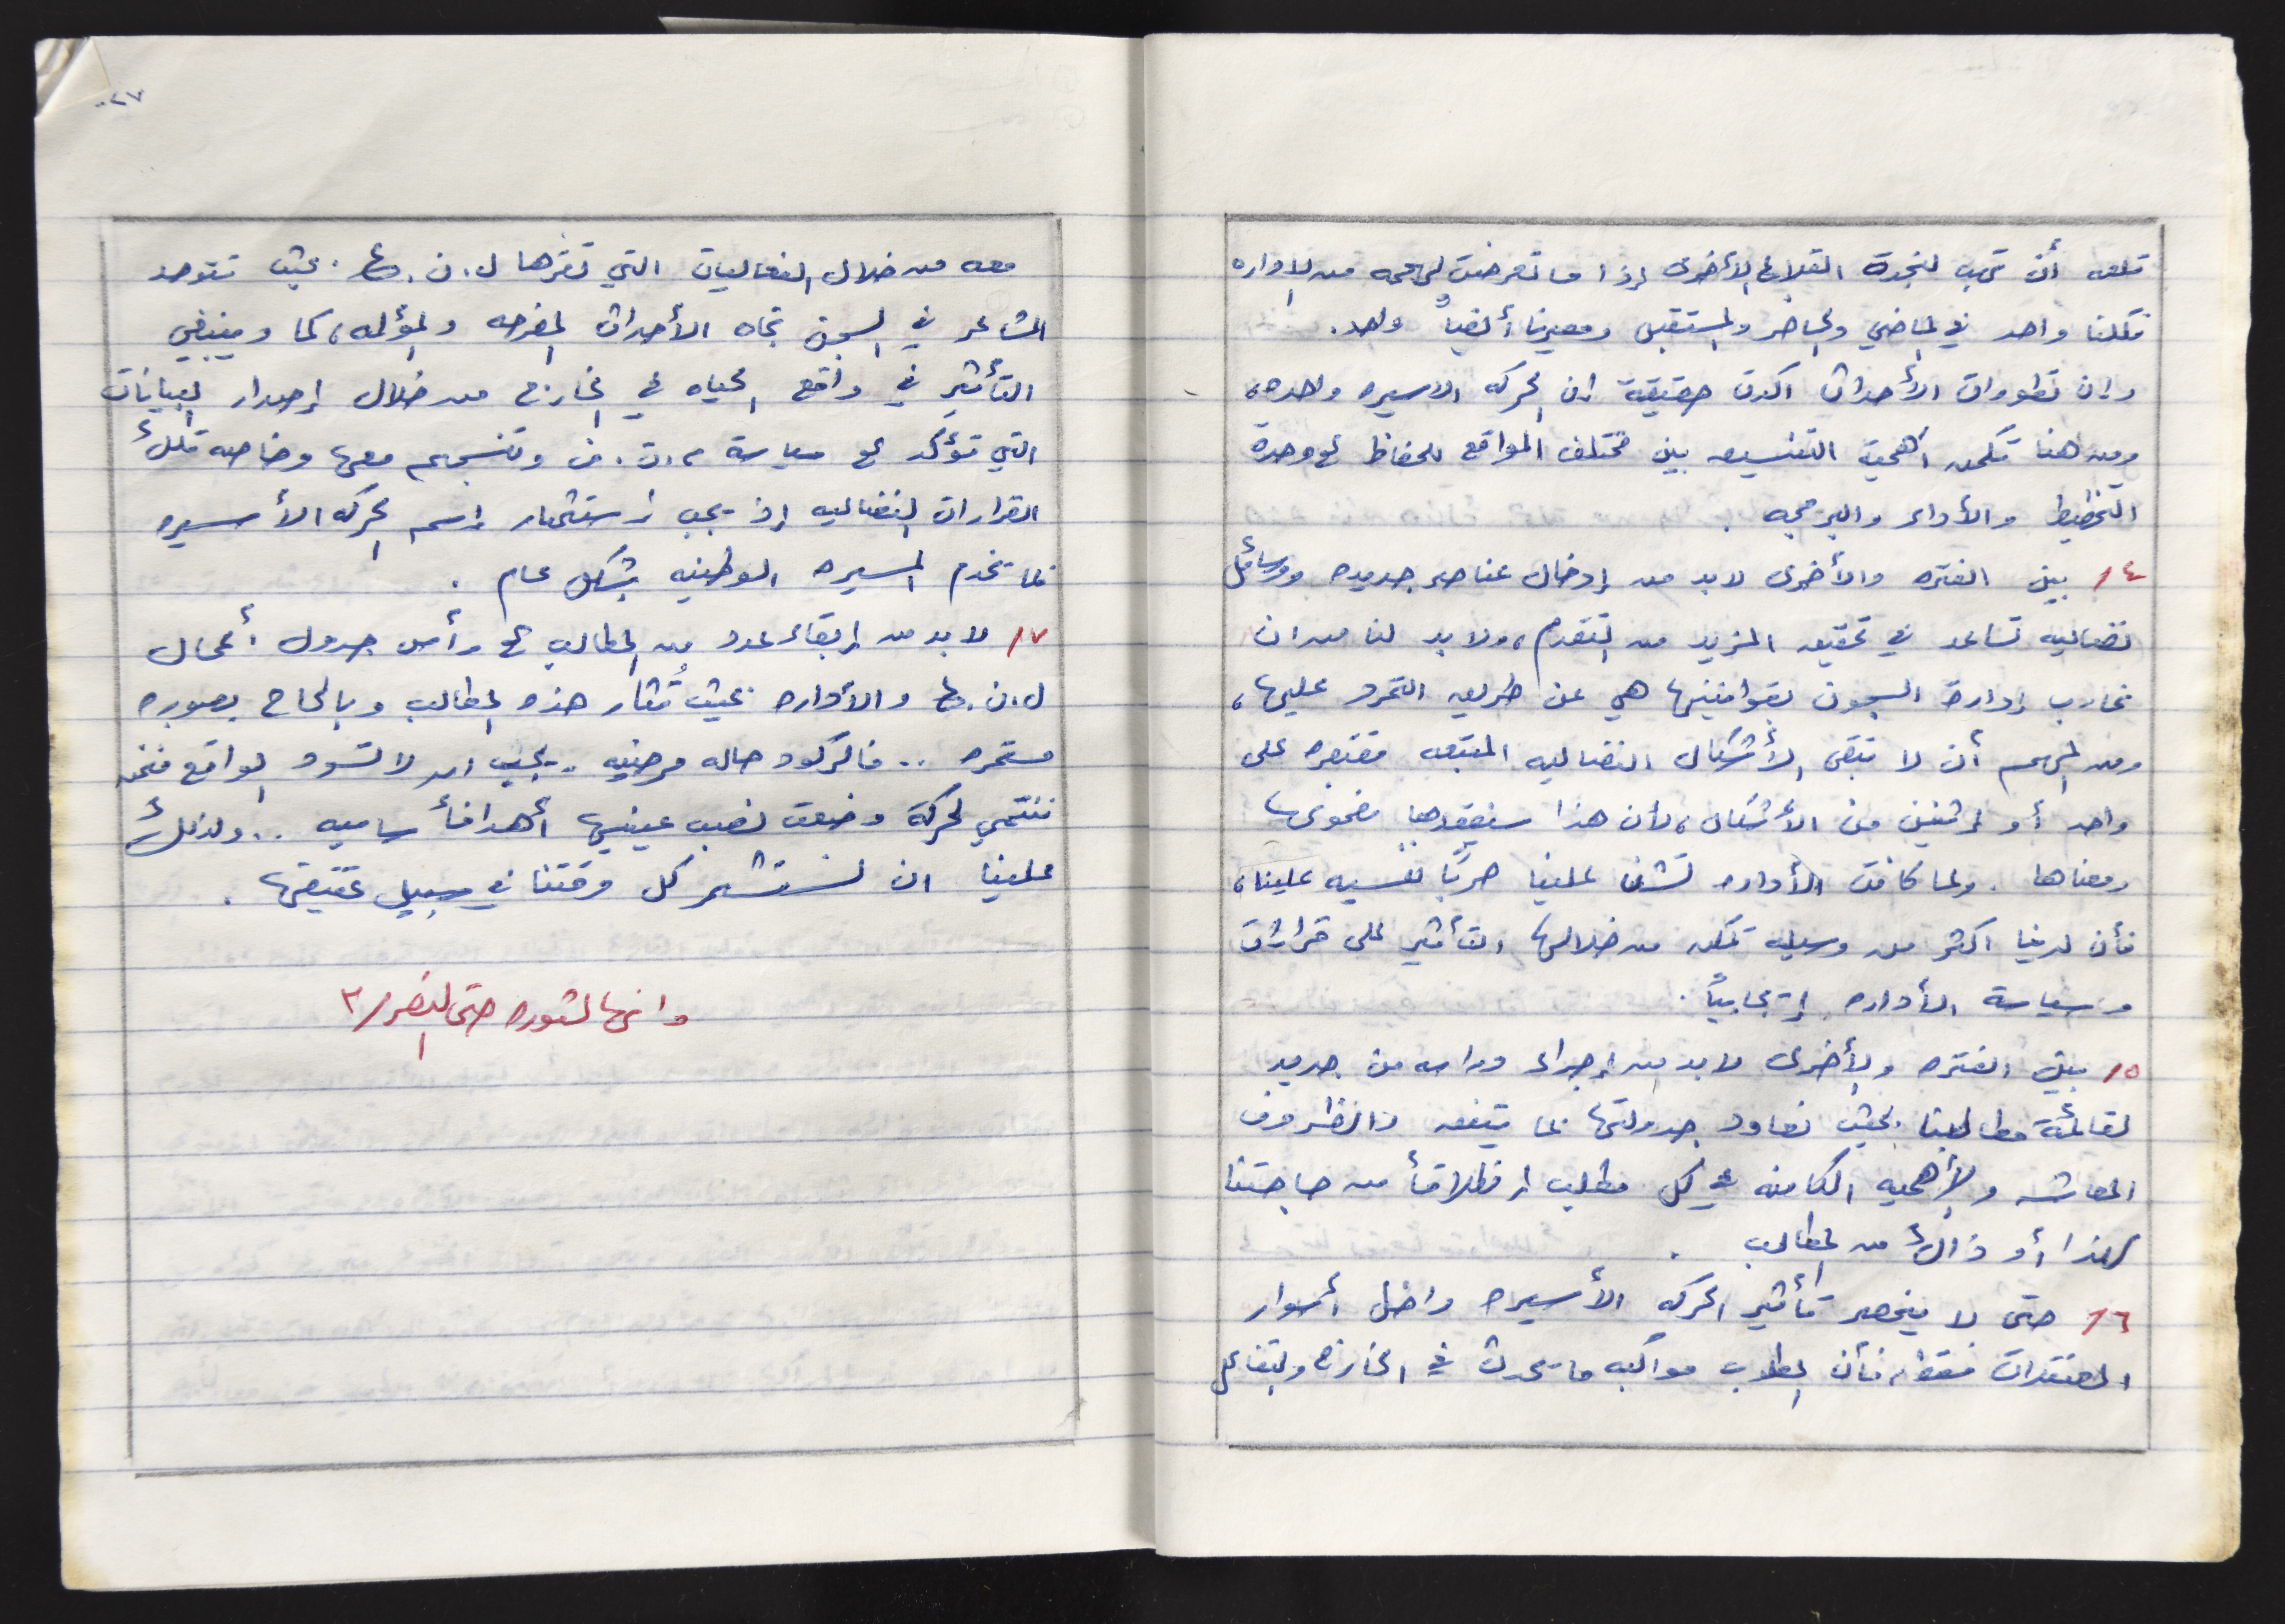 قلعه أن تهب لنجدة القلاع الأخرى إذا ما تعرضت لهجمه من الإداره
فكلنا واحد في الماضي والحاضر والمستقبل ومصيرنا أيضاً واحد.
وإن تطورات الأحداث اكدت حقيقة ان الحركه الاسيره واحده،
ومن هنا تكمن أهمية التنسيق بين مختلف المواقع للحفاظ ع وحدة
التخطيط والأداء والبرمجه .
١٤/ بين الفتره والأخرى لابد من إدخال عناصر جديده ووسائل
نضاليه تساعد في تحقيق المزيد من التقدم، ولا بد لنا من ان
نحارب إدارة السجون بقوانينها هي عن طريق التمرد عليها،
ومن المهم أن لا تبقى الأشكال النضاليه المتبعه مقتصره على
واحد أو اثنين من الأشكال، لأن هذا سيفقدها مضمونها
ومعناها . ولما كانت الأداره تشن علينا حرباً نفسيه علينا،
فأن لدينا اكثر من وسيله نتمكن من خلالها التأثير على قرارات
وسياسة الأداره إيجابياً .
١٥/ بين الفتره والأخرى لابد من إجراء دراسه من جديد
لقائمة مطالبنا بحيث نعاود جدولتها بما يتفق والظروف
المعاشه والأهميه الكامنه في كل مطلب إنطلاقاً من حاجتنا
لهذا أو ذاك من المطالب .
١٦/ حتى لا ينحصر تأثير الحركه الأسيره داخل أسوار
المعتقلات فقط، فأن المطلوب مواكبه ما يحدث في الخارج والتفاعل
٢٧.
معه من خلال الفعاليات التي تقرها ل.ن.ط. بحيث تتوحد
المشاعر في السجن تجاه الأحداث المفرحه والمؤلمه، كما وينبغي
التأثير في واقع الحياه في الخارج من خلال إصدار البيانات
التي تؤكد ع سياسة م.ت.ف وتنسجم معها وخاصه تلك
القرارات النضاليه إذ يجب إستثمار إسم الحركه الأسيره
بما يخدم المسيره الوطنيه بشكل عام .
١٧/ لا بد من إبقاء عدد من المطالب ع رأس جدول أعمال
ل.ن.ط والأداره بحيث تُثار هذه المطالب وبالحاح بصوره
مستمره .. فالركود حاله مرضيه .. يجب ان لا تسود الواقع فنحن
ننتمي لحركة وضعت نصب عينيها أهدافاً ساميه .. ولذلك
علينا ان نستثمر كل وقتنا في سبيل تحقيقها .
وانها لثوره حتى النصر/٢